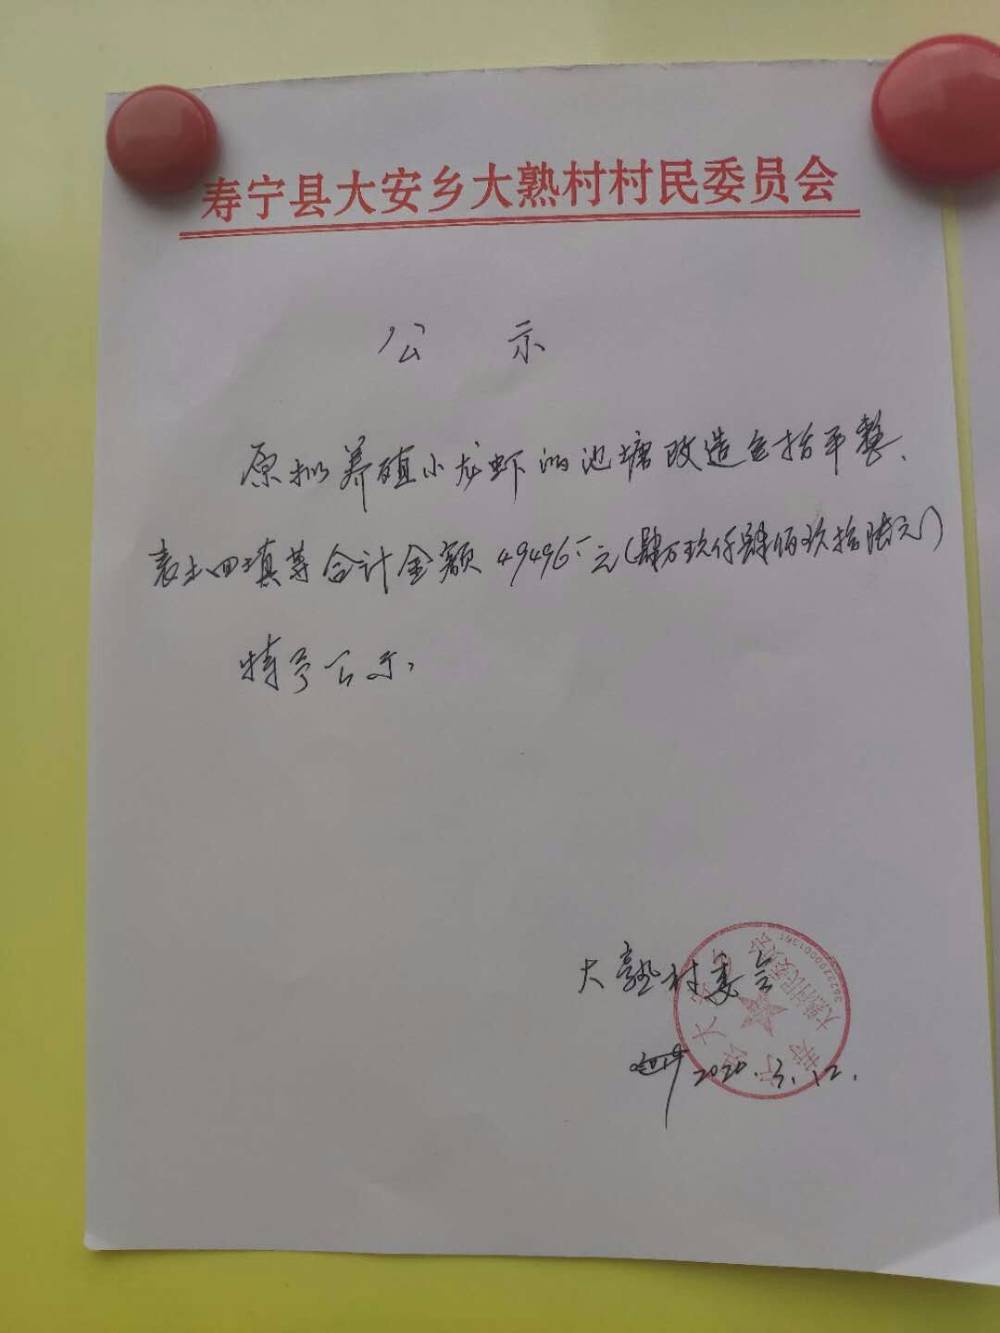 寿宁县大安乡大熟村村民委员会
公 示
原拟养殖小龙虾的池塘改造包括平整、
表土回填等合计金额 49496元(肆万玖仟肆佰玖拾陆元)
特予公示。
大熟村委会
2020.3.12.
大熟村民委员会